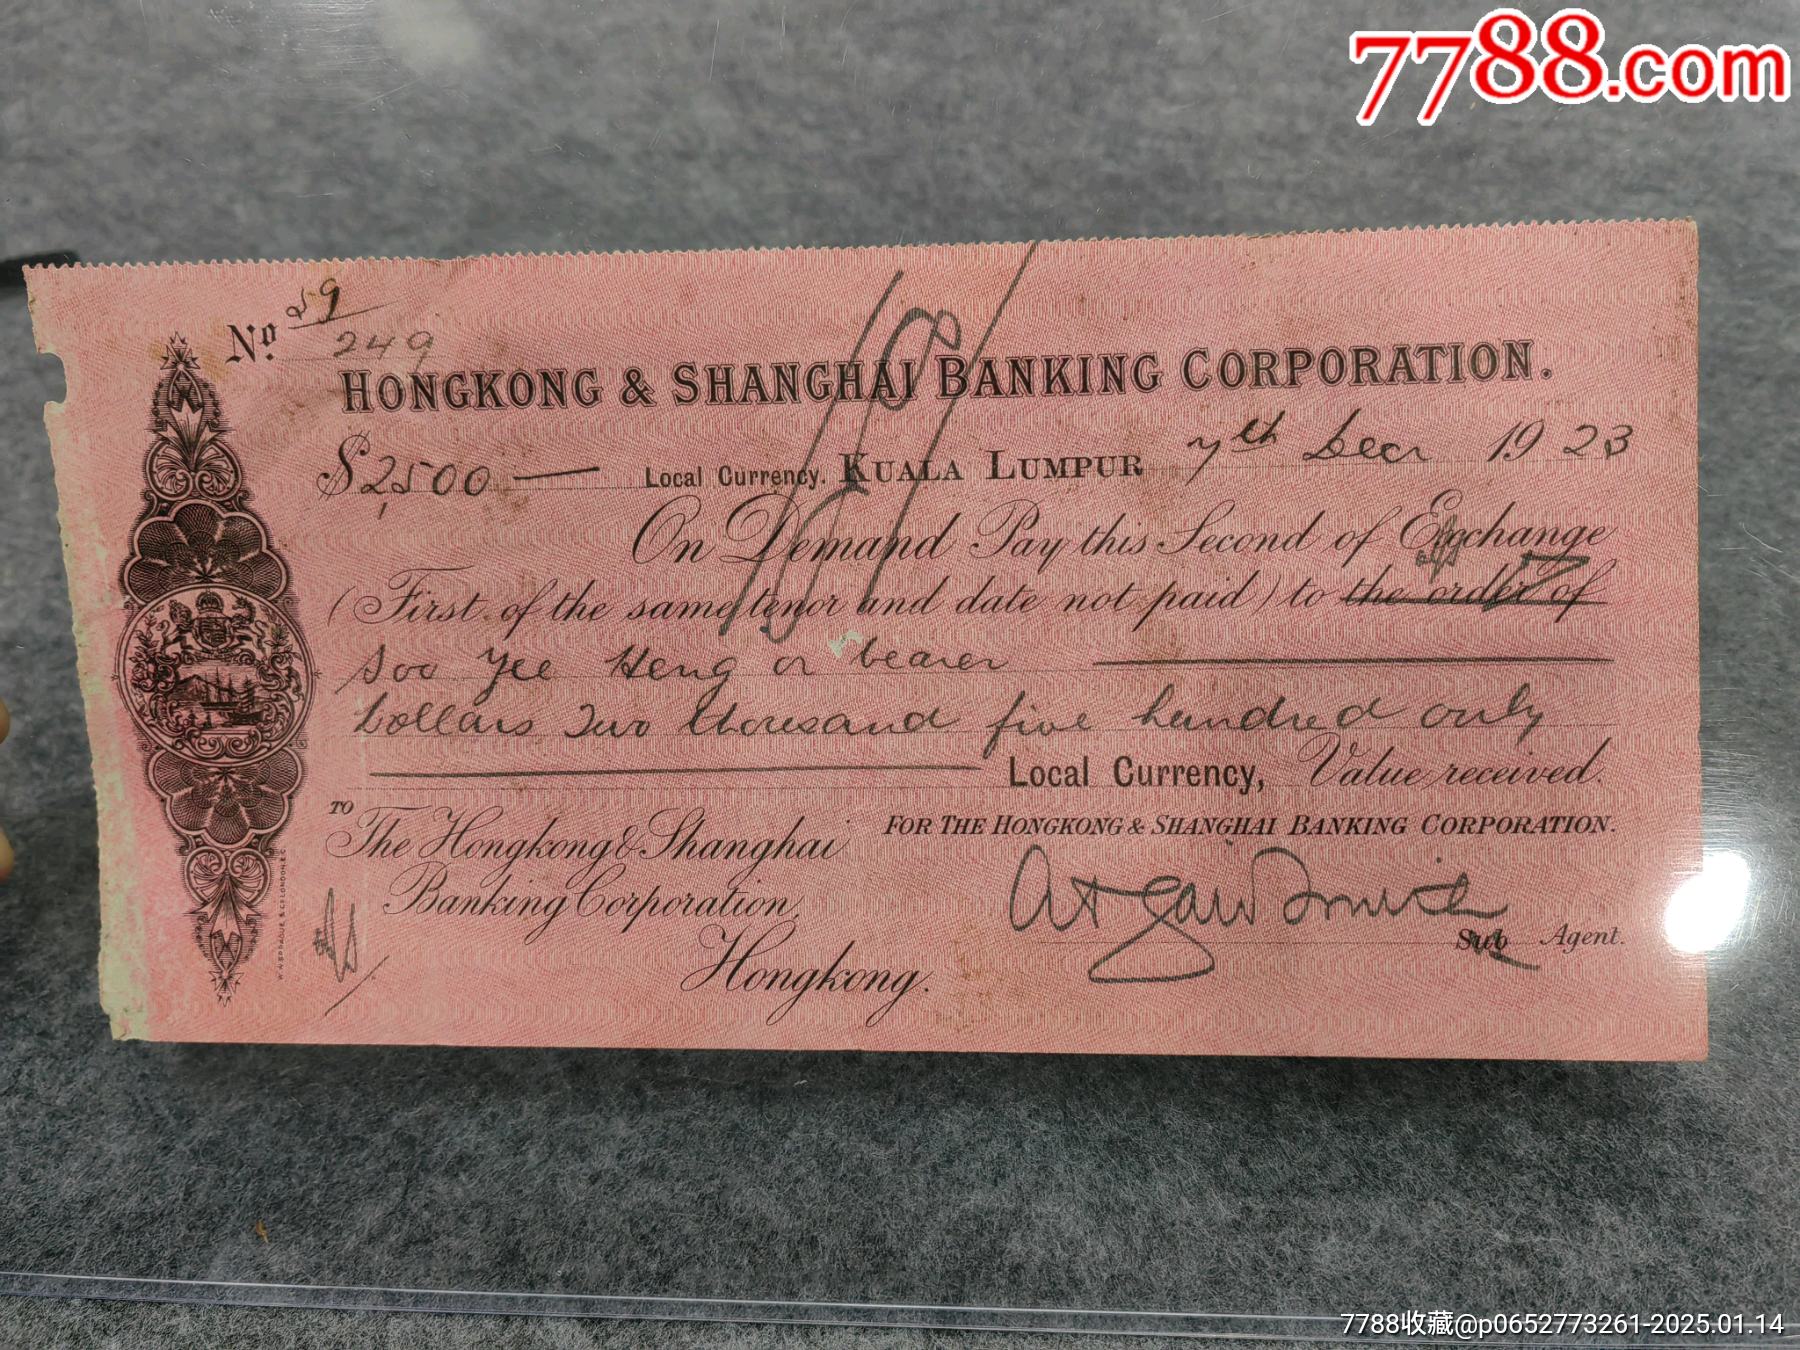 7788.com
No. 59
249
HONGKONG & SHANGHAI BANKING CORPORATION.
$2,500 — Local Currency. KUALA LUMPUR 7th Decr 1923
On Demand Pay this Second of Exchange
(First of the same tenor and date not paid) to the order of
Soo Yee Heng or bearer
Dollars Two thousand five hundred only
Local Currency, Value received.
TO
The Hongkong & Shanghai
Banking Corporation,
Hongkong.
FOR THE HONGKONG & SHANGHAI BANKING CORPORATION.
Sub Agent.
7788收藏@p0652773261-2025.01.14